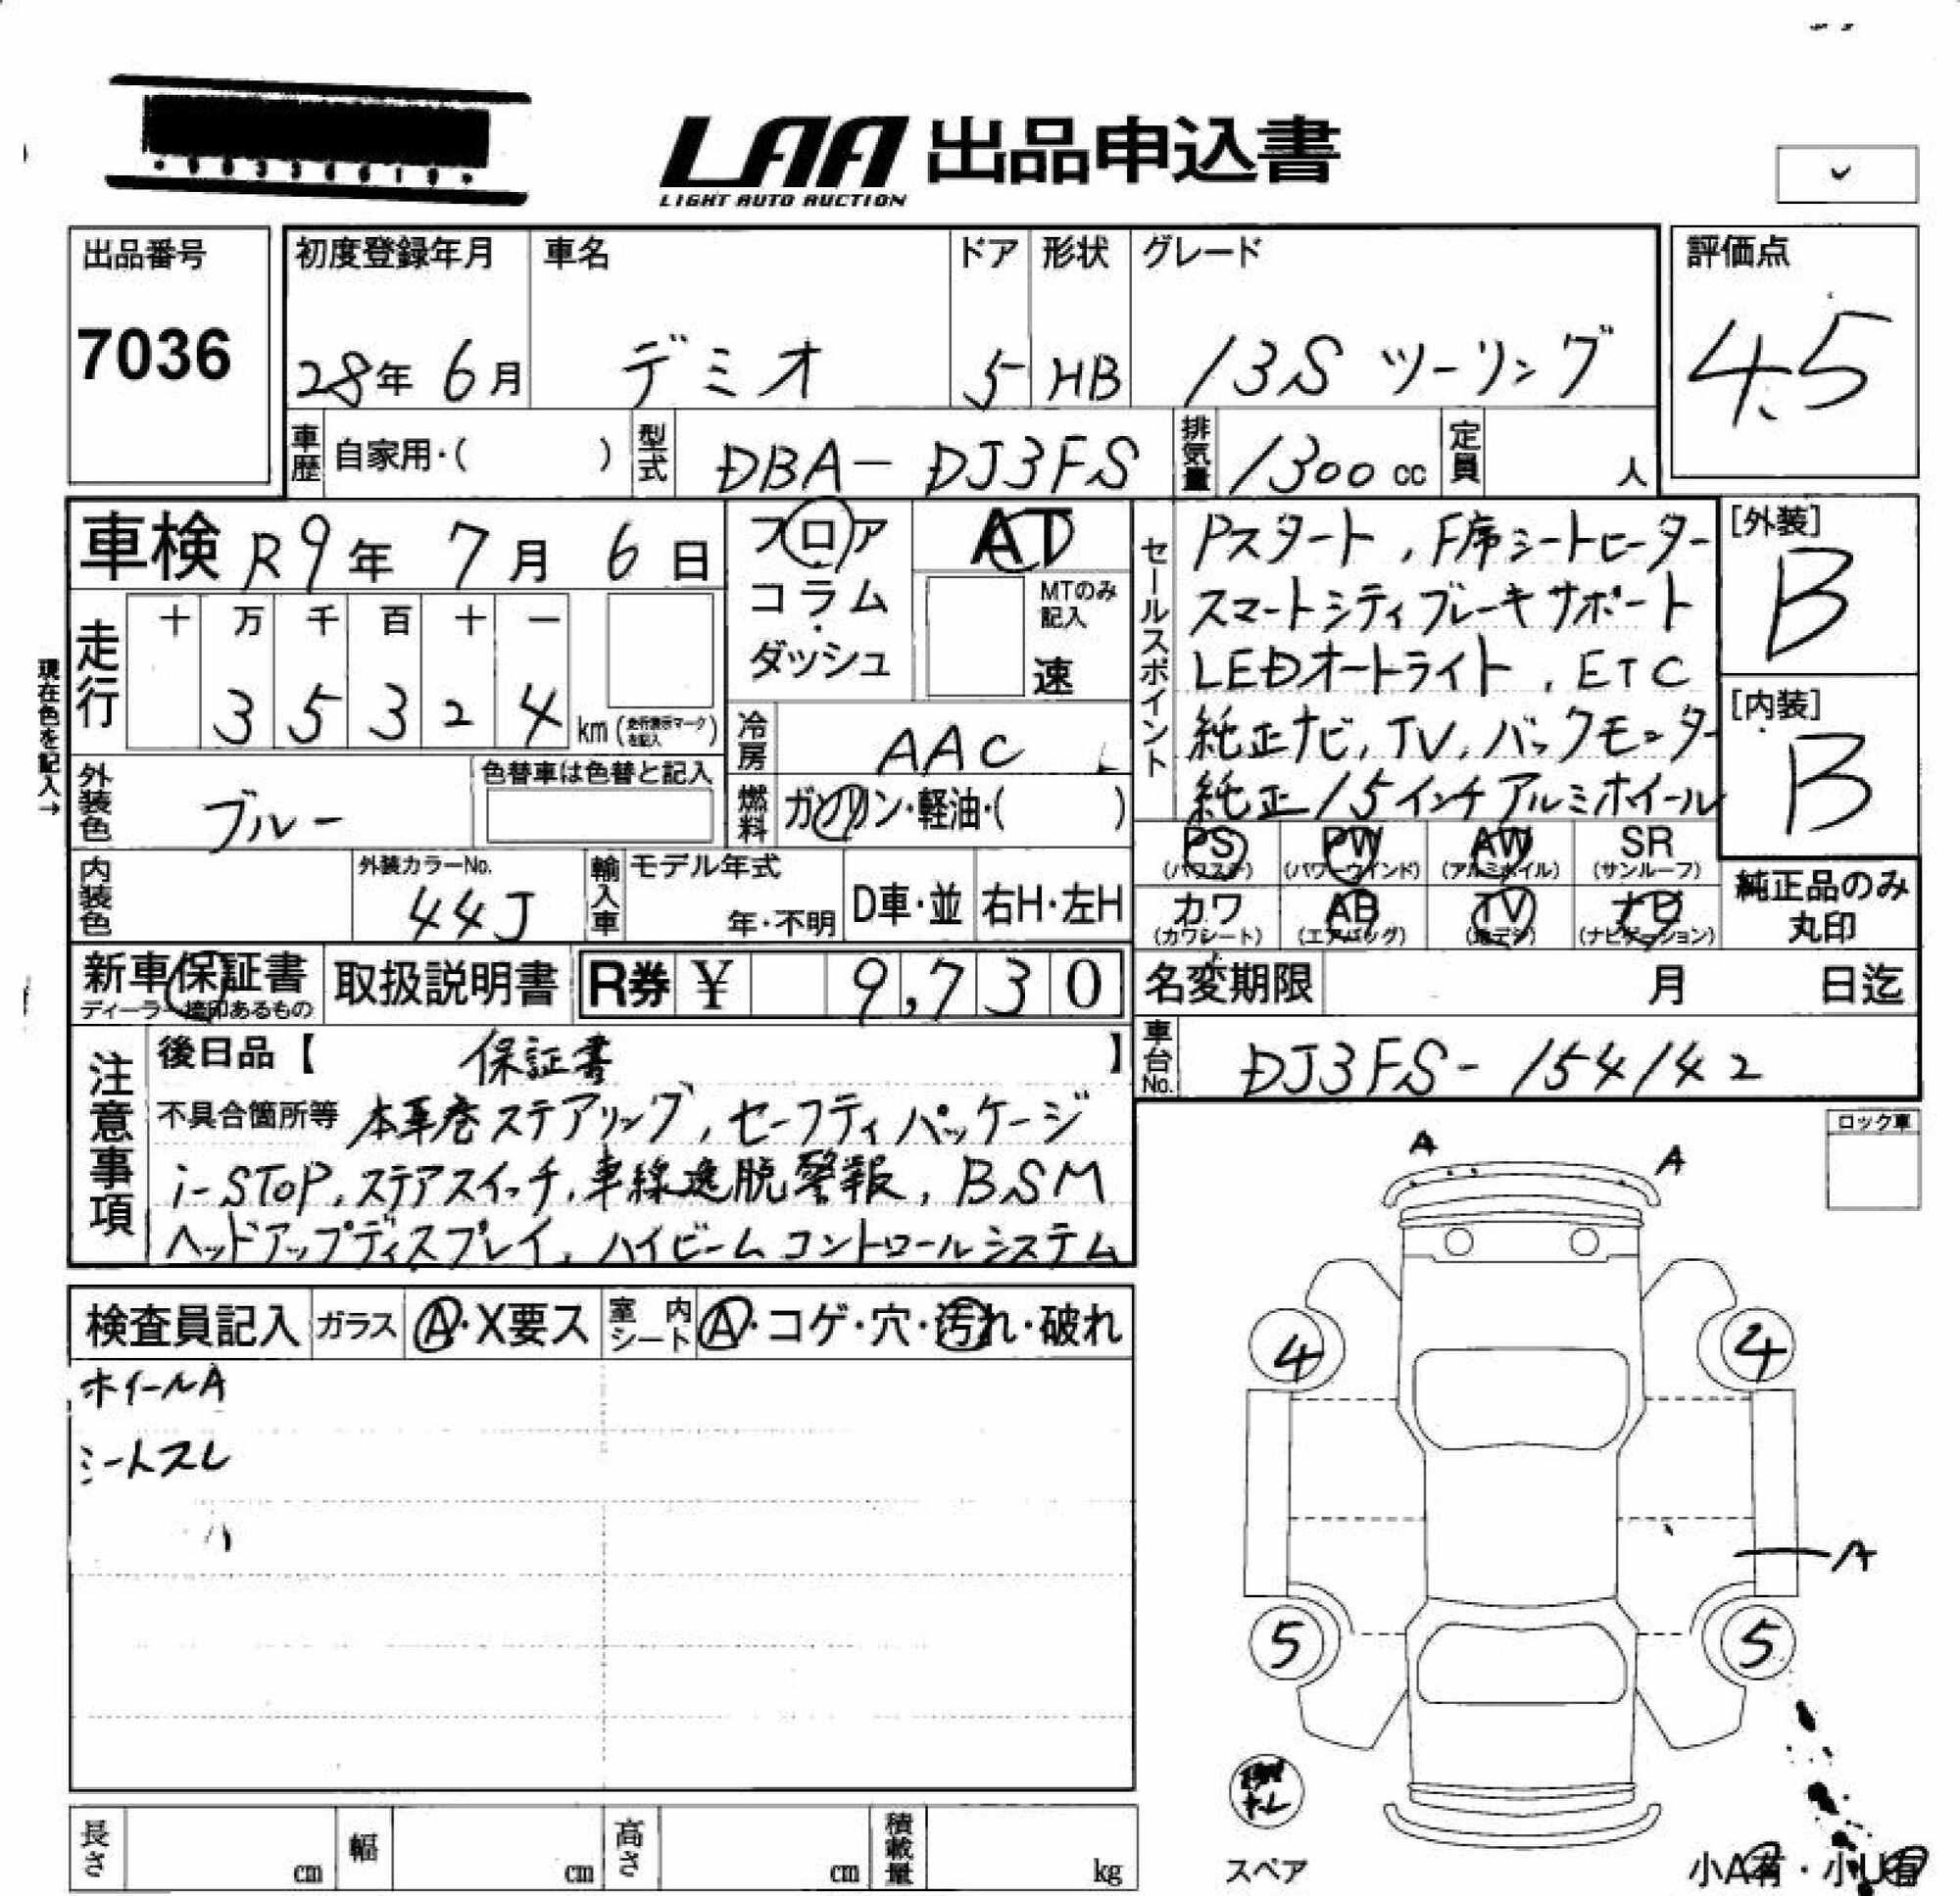 LAA 出品申込書
LIGHT AUTO AUCTION
出品番号
7036
初度登録年月
28年 6月
車名
デミオ
ドア
5
形状
HB
グレード
13S ツーリング
評価点
4.5
車歴 自家用・( )
型式 DBA-DJ3FS
排気量 1300 cc
定員 人
車検 R9年 7月 6日
フロア
コラム
ダッシュ
AT
MTのみ記入
速
走行
十 万 千 百 十 一
3 5 3 2 4 km (走行表示マークを記入)
現在色を記入→
冷房 AAC
燃料 ガソリン・軽油・( )
外装色 ブルー
色替車は色替と記入
内装色
外装カラーNo.
44J
輸入車
モデル年式
年・不明
D車・並
右H・左H
セールスポイント
Pスタート, F席シートヒーター
スマートシティブレーキサポート
LEDオートライト, ETC
純正ナビ, TV, バックモニター
純正15インチアルミホイール
[外装]
B
[内装]
B
PS (パワステ) PW (パワーウインド) AW (アルミホイル) SR (サンルーフ)
カワ (カワシート) AB (エアバッグ) TV (地デジ) ナビ (ナビゲーション)
純正品のみ丸印
新車保証書
ディーラー捺印あるもの
取扱説明書
R券 ¥ 9,730
名変期限 月 日迄
車台No. DJ3FS-154142
注意事項
後日品【 保証書 】
不具合箇所等 本革巻ステアリング, セーフティパッケージ
i-STOP, ステアスイッチ, 車線逸脱警報, BSM
ヘッドアップディスプレイ, ハイビームコントロールシステム
ロック車
A
A
検査員記入 ガラス A・X要ス 室内シート A・コゲ・穴・汚れ・破れ
ホイールA
シートスレ
4
4
A
5
5
スペア
小A有・小U有
長さ cm 幅 cm 高さ cm 積載量 kg